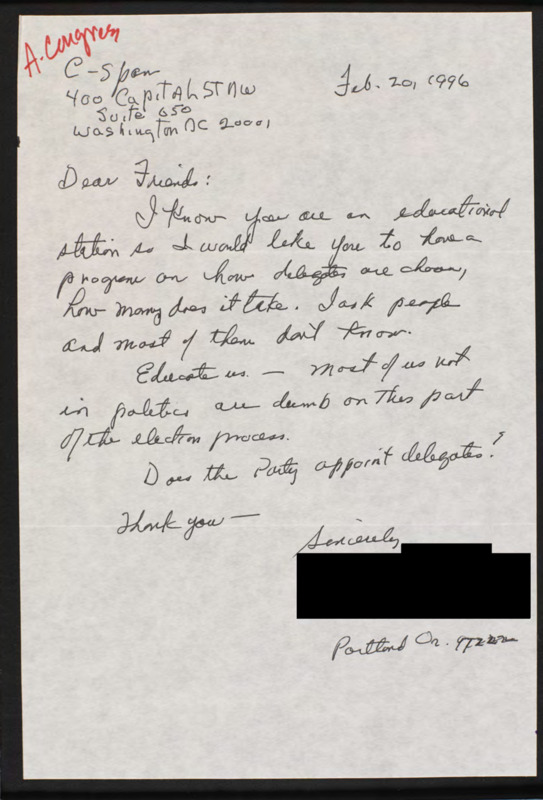 A. Congress
C-Span
400 Capital ST NW
Suite 650
Washington DC 20001
Feb. 20, 1996
Dear Friends:
I know you are an educational
station so I would like you to have a
program on how delegates are chosen,
how many does it take. I ask people
and most of them don't know.
Educate us. — most of us not
in politics are dumb on this part
of the election process.
Does the Party appoint delegates?
Thank you —
Sincerely
Portland Or.